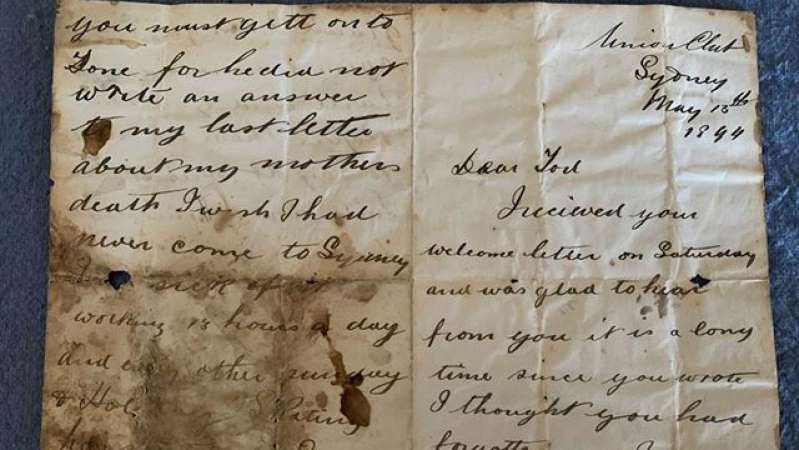 Union Club
Sydney
May
1894
Dear Tod
I recieved your
welcome letter on Saturday
and was glad to hear
from you it is a long
time since you wrote
I thought you had
you must gett on to
Tone for he did not
write an answer
to my last letter
about my mothers
death I wish I had
never come to Sydney
I sick of it
working 13 hours a day
and other sunday
& Hol